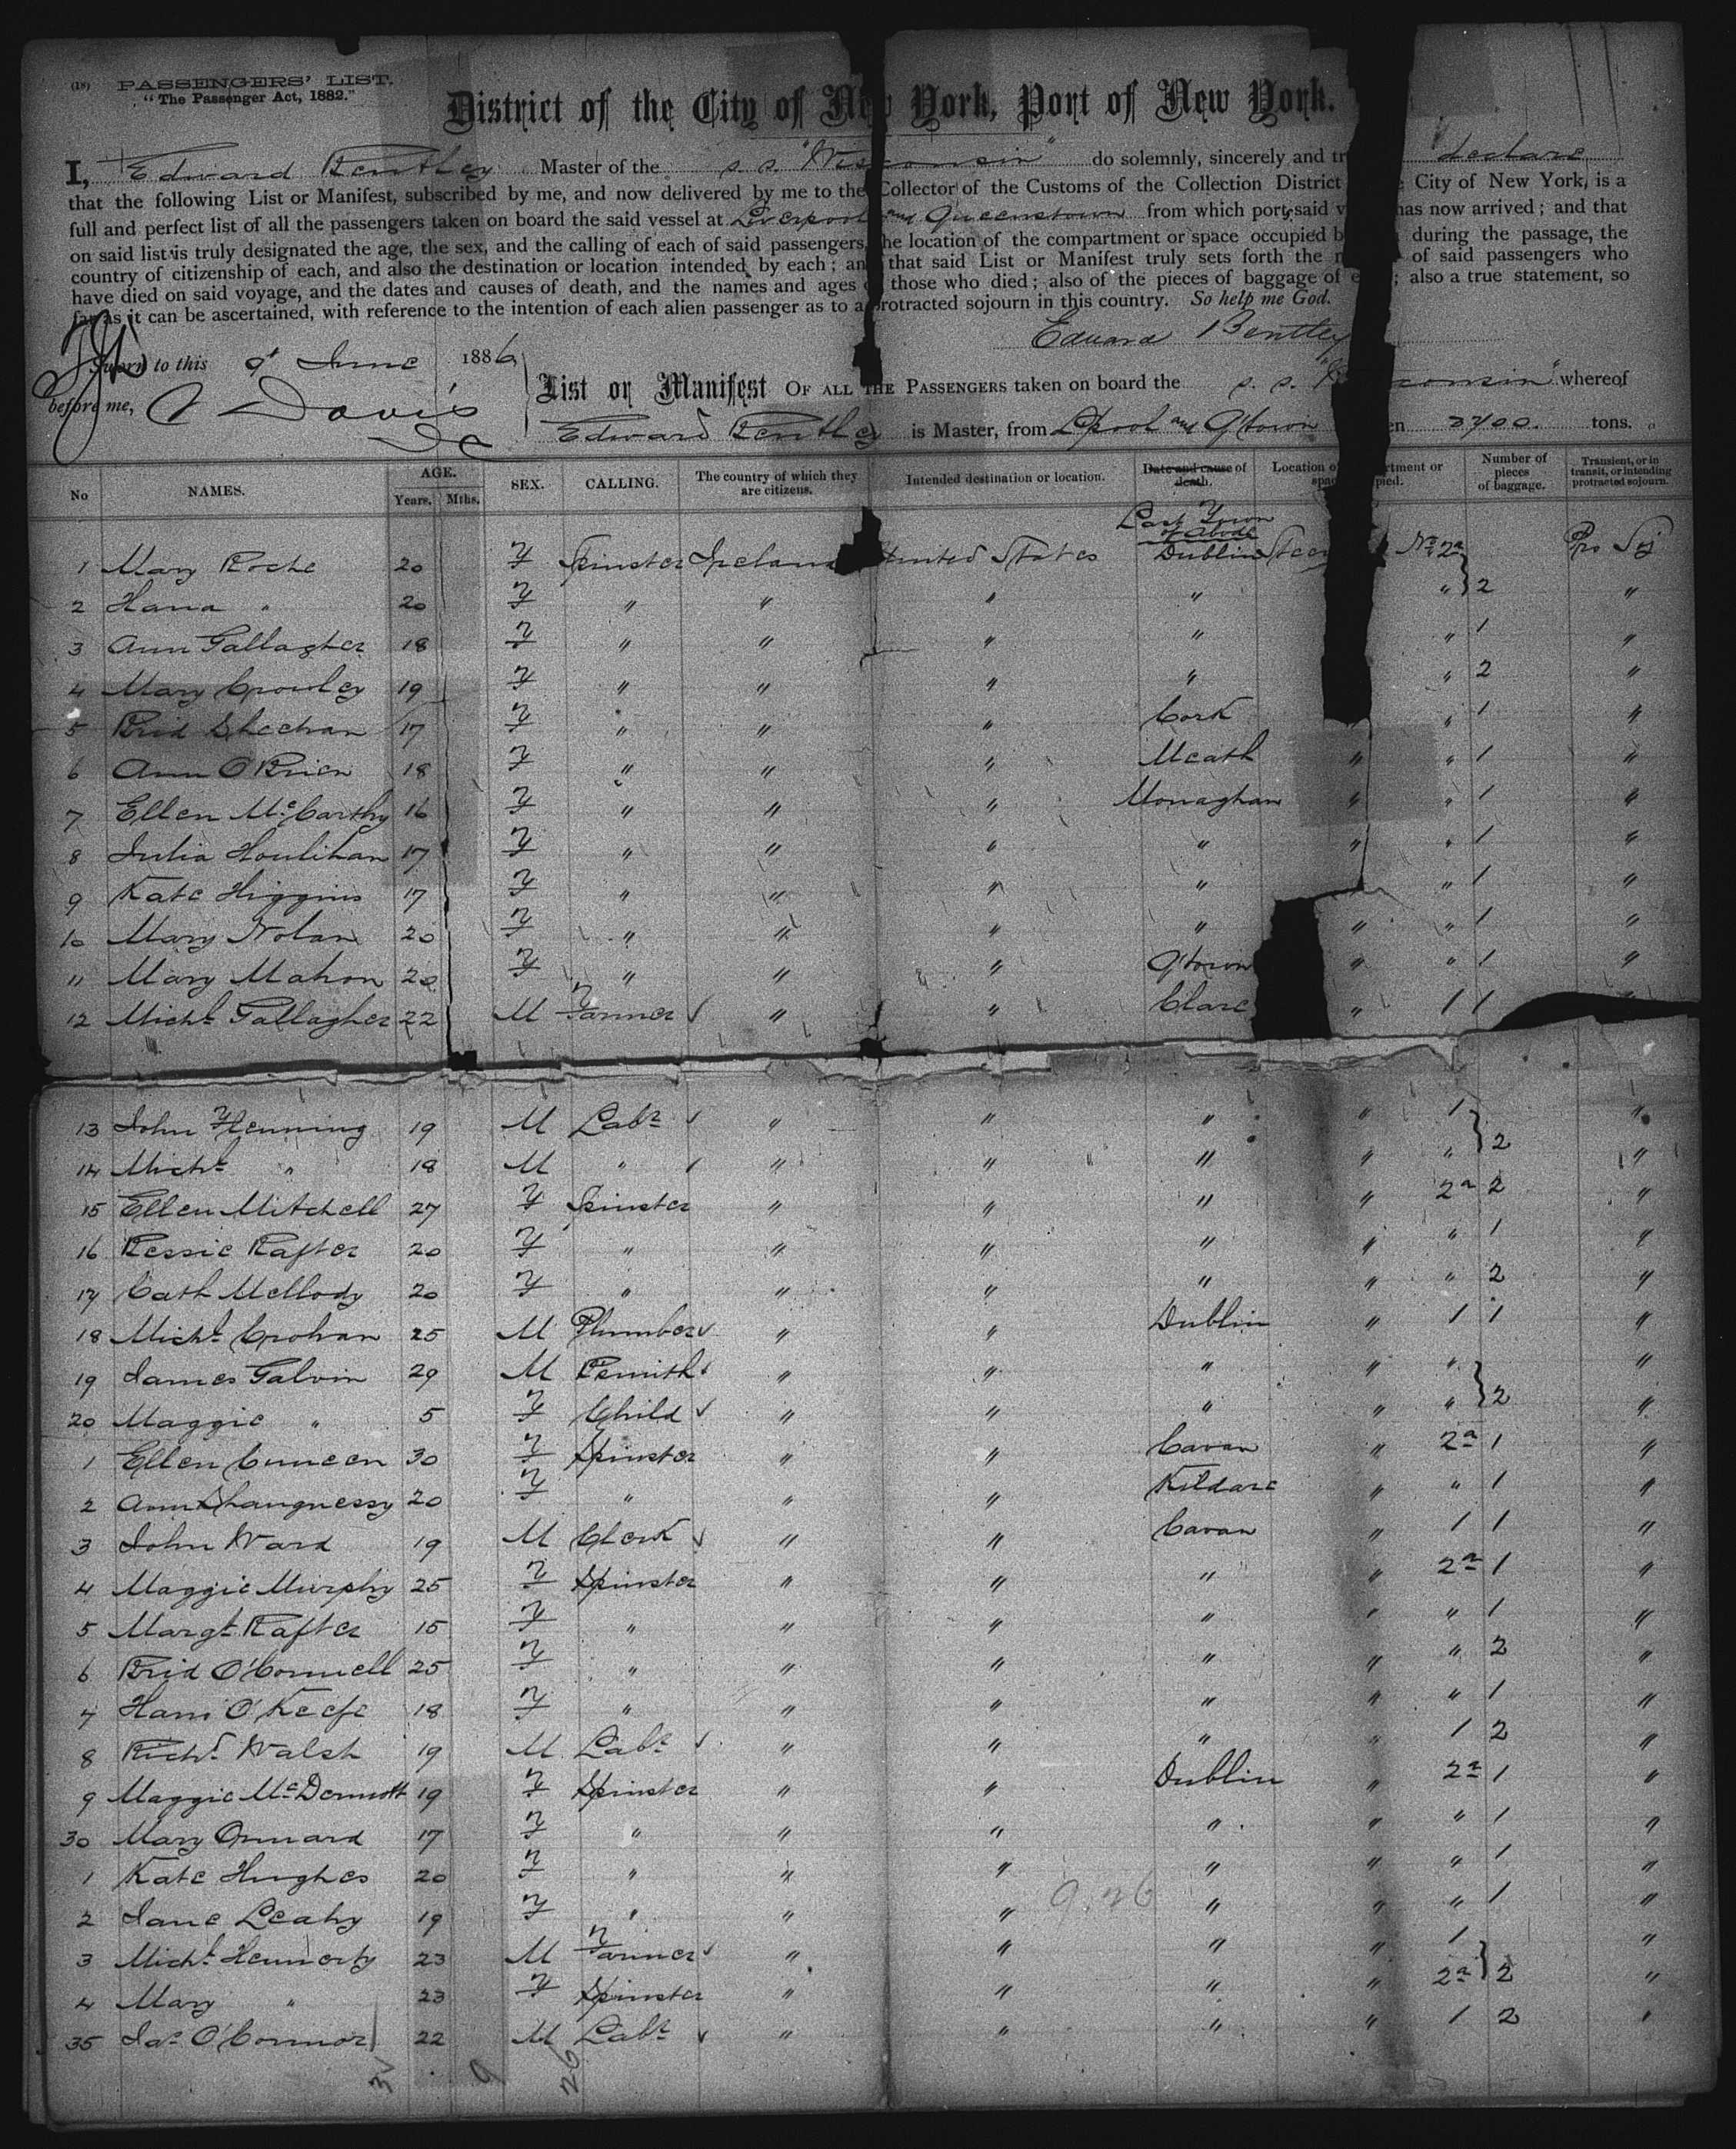 (18) PASSENGERS' LIST.
"The Passenger Act, 1882."
District of the City of New York, Port of New York.
I, Edward Bentley Master of the s.s. "Wisconsin" do solemnly, sincerely and tr declare
that the following List or Manifest, subscribed by me, and now delivered by me to the Collector of the Customs of the Collection District City of New York, is a
full and perfect list of all the passengers taken on board the said vessel at Liverpool and Queenstown from which port said v has now arrived; and that
on said list is truly designated the age, the sex, and the calling of each of said passengers, the location of the compartment or space occupied b during the passage, the
country of citizenship of each, and also the destination or location intended by each; an that said List or Manifest truly sets forth the n of said passengers who
have died on said voyage, and the dates and causes of death, and the names and ages o those who died; also of the pieces of baggage of e ; also a true statement, so
far as it can be ascertained, with reference to the intention of each alien passenger as to a protracted sojourn in this country. So help me God.
Edward Bentley
Sworn to this 9t June 1886
List or Manifest OF ALL THE PASSENGERS taken on board the s.s. "Wisconsin" whereof
before me, Davis
Edward Bentley is Master, from Lpool and Qtown en 2700. tons.
No NAMES. AGE. Years. Mths. SEX. CALLING. The country of which they are citizens. Intended destination or location. Date and cause of death. Location o rtment or spac pied. Number of pieces of baggage. Transient, or in transit, or intending protracted sojourn.
Last Town of Abode
1 Mary Roche 20 F Spinster Ireland United States Dublin Steer No 2a Pro Soj
2 Hana " 20 F " " " " " } 2 "
3 Ann Gallagher 18 F " " " " " 1 "
4 Mary Crowley 19 F " " " " " 2 "
5 Brid Sheehan 17 F " " " Cork " 1 "
6 Ann O'Brien 18 F " " " Meath " " 1 "
7 Ellen McCarthy 16 F " " " Monaghan " " 1 "
8 Julia Houlihan 17 F " " " " " " 1 "
9 Kate Higgins 17 F " " " " " 1 "
10 Mary Nolan 20 F " " " " " " 1 "
11 Mary Mahon 20 F " " " Qtown " " 1 "
12 Michl Gallagher 22 M Farmer " " Clare " 1 1 "
13 John Flenning 19 M Labr " " " " 1 "
14 Michl " 18 M " " " " " " } 2 "
15 Ellen Mitchell 27 F Spinster " " " " 2a 2 "
16 Bessie Rafter 20 F " " " " " " 1 "
17 Cath Mellody 20 F " " " " " " 2 "
18 Michl Crohan 25 M Plumber " " Dublin " 1 1 "
19 James Galvin 29 M Bsmith " " " " " "
20 Maggie " 5 F Child " " " " " } 2 "
1 Ellen Cuneen 30 F Spinster " " Cavan " 2a 1 "
2 Ann Shaugnessy 20 F " " " Kildare " " 1 "
3 John Ward 19 M Clerk " " Cavan " 1 1 "
4 Maggie Murphy 25 F Spinster " " " " 2a 1 "
5 Margt Rafter 15 F " " " " " " 1 "
6 Brid O'Connell 25 F " " " " " " 2 "
7 Hani O'Keefe 18 F " " " " " " 1 "
8 Richd Walsh 19 M Labr " " " " 1 2 "
9 Maggie McDermott 19 F Spinster " " Dublin " 2a 1 "
30 Mary 17 F " " " " " " 1 "
1 Kate Hughes 20 F " " " " " " 1 "
2 Jane Leahy 19 F " " " " " " 1 "
9.26
3 Michl Hennerty 23 M Farmer " " " " 1 "
4 Mary " 23 F Spinster " " " " 2a } 2 "
35 Jas O'Connor 22 M Labr " " " " 1 2 "
9 26